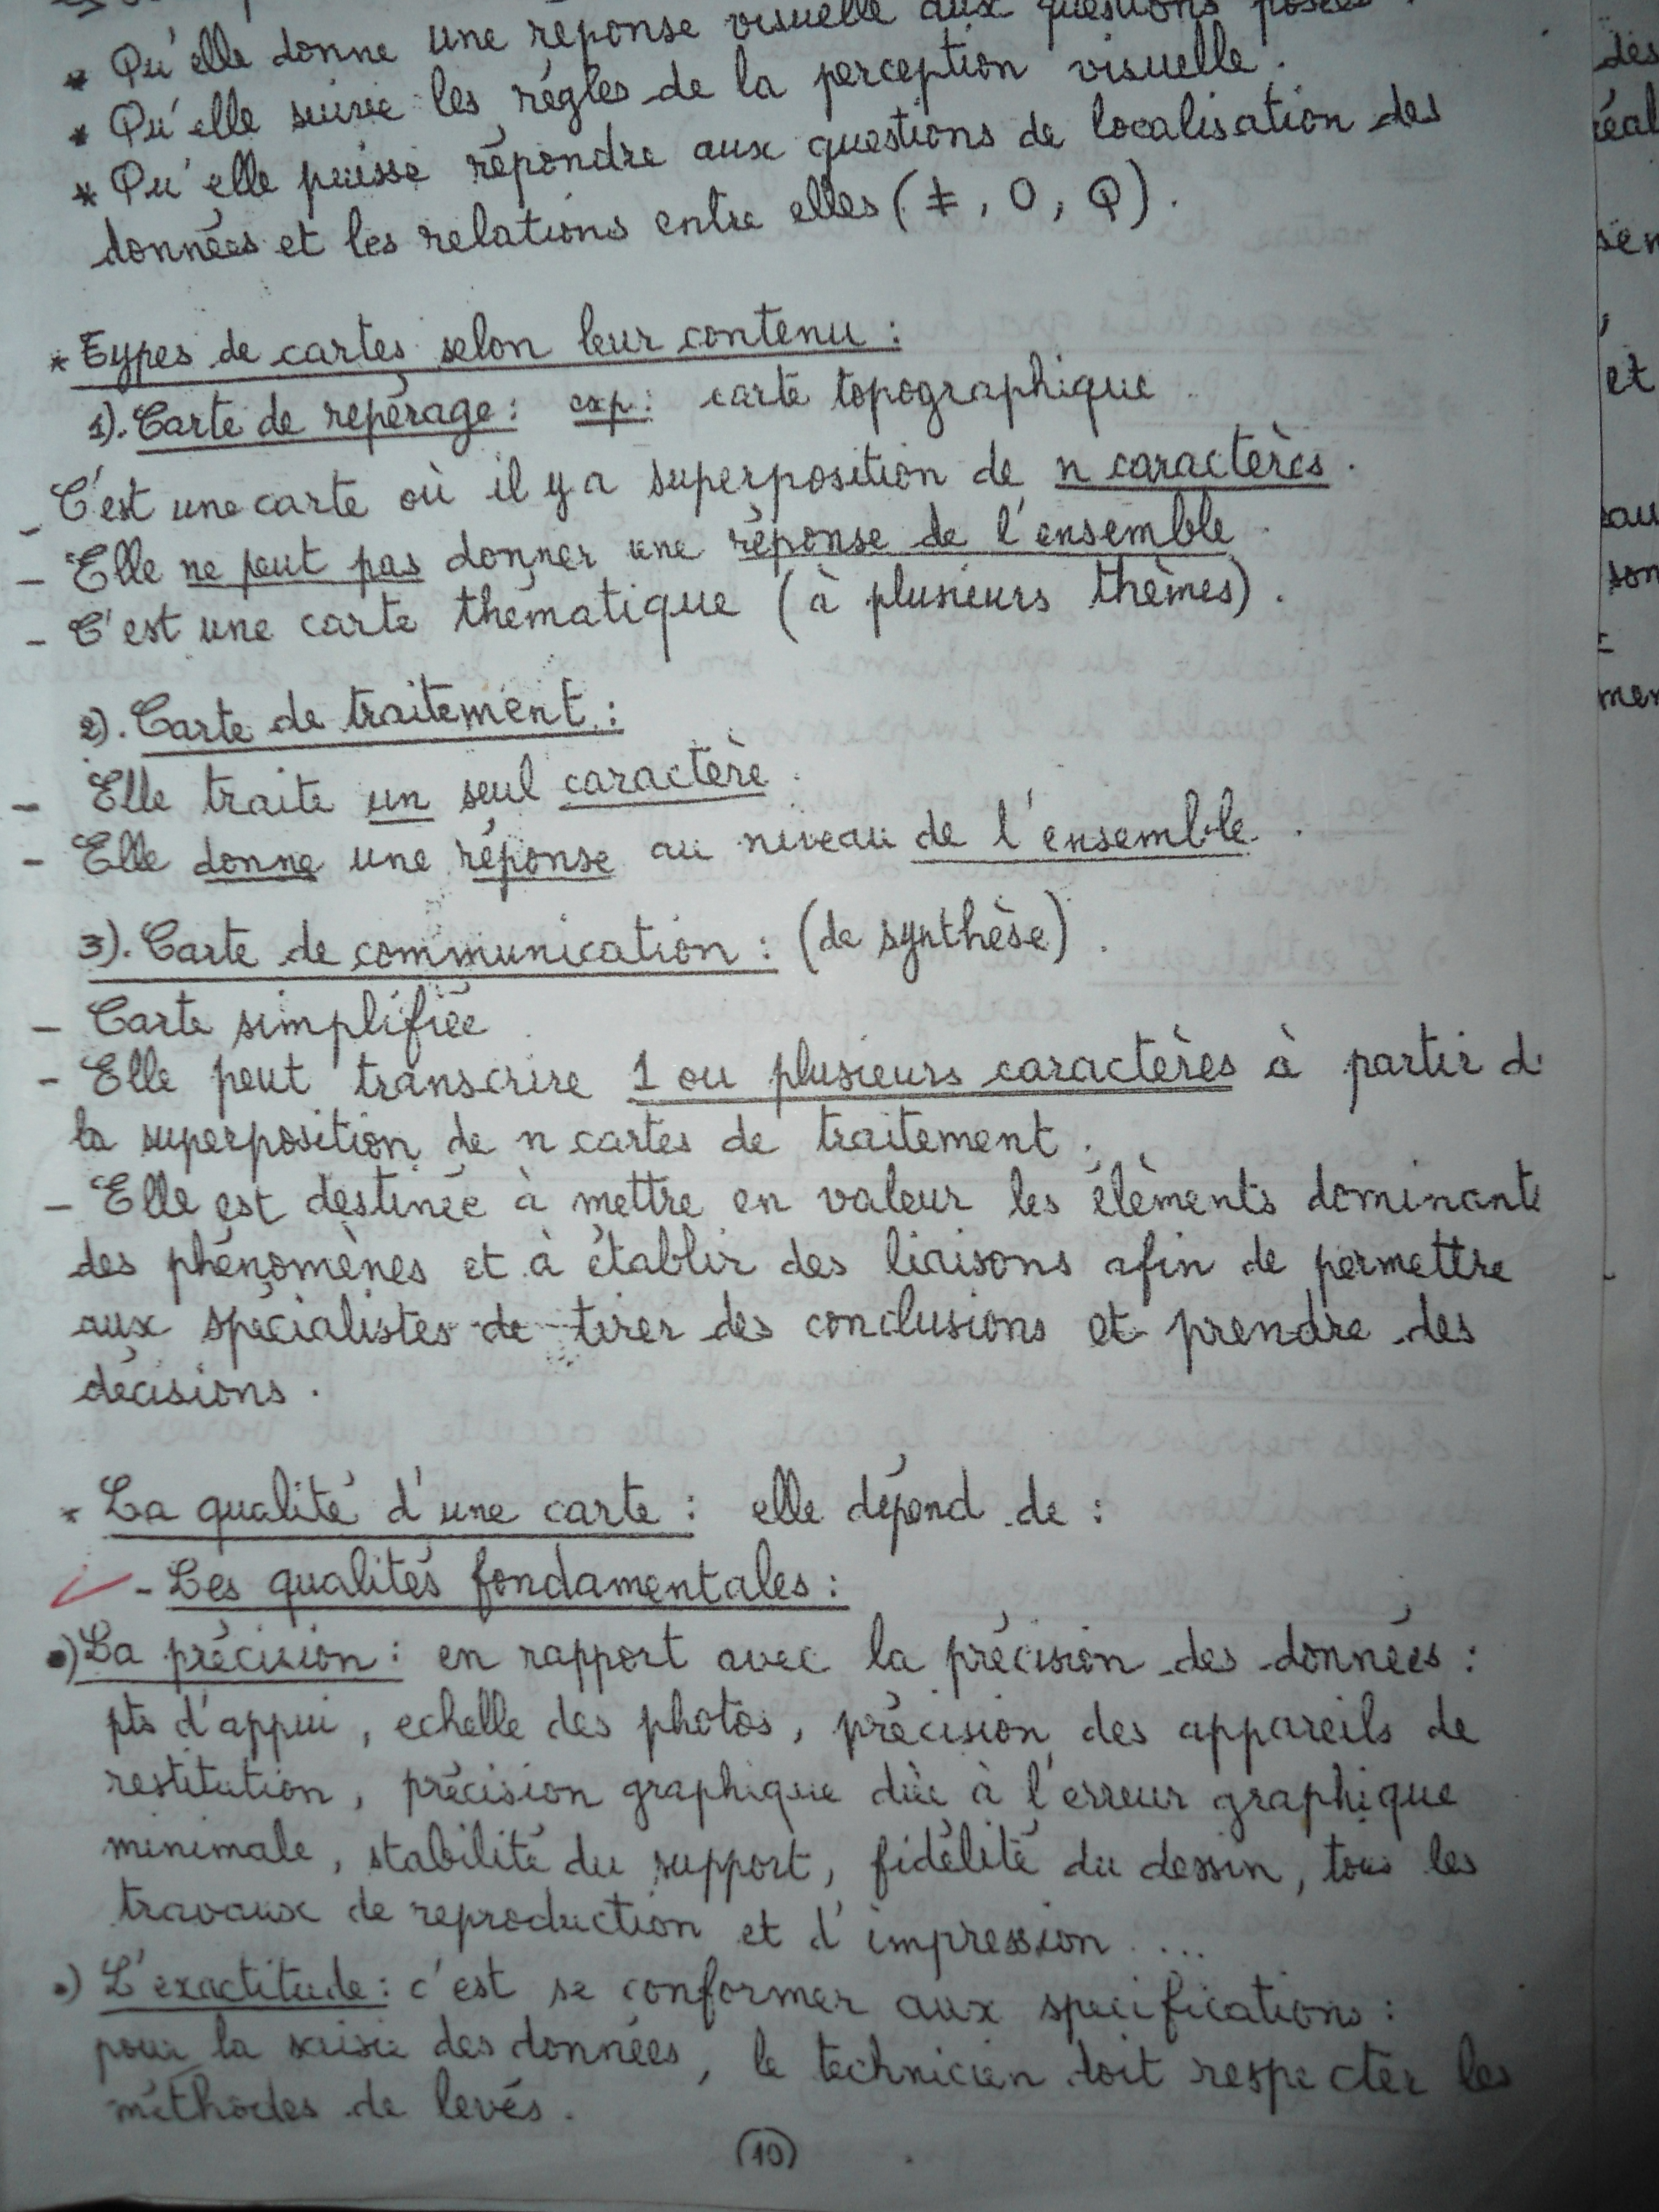 * Qu'elle donne une réponse visuelle aux questions posées.
* Qu'elle suive les régles de la perception visuelle.
* Qu'elle puisse répondre aux questions de localisation des
données et les relations entre elles (≠, O, Q).
* Types de cartes selon leur contenu :
1). Carte de repérage : exp : carte topographique
- C'est une carte où il y a superposition de n caractères.
- Elle ne peut pas donner une réponse de l'ensemble.
- C'est une carte thématique (à plusieurs thèmes).
2). Carte de traitement :
- Elle traite un seul caractère.
- Elle donne une réponse au niveau de l'ensemble.
3). Carte de communication : (de synthèse).
- Carte simplifiée
- Elle peut transcrire 1 ou plusieurs caractères à partir d
la superposition de n cartes de traitement.
- Elle est destinée à mettre en valeur les élèments dominant
des phénomènes et à établir des liaisons afin de permettre
aux spécialistes de tirer des conclusions et prendre des
décisions.
* La qualité d'une carte : elle dépend de :
- Les qualités fondamentales :
•) La précision : en rapport avec la précision des données :
pts d'appui, echelle des photos, précision des appareils de
restitution, précision graphique dûe à l'erreur graphique
minimale, stabilité du support, fidélité du dessin, tous les
travaux de reproduction et d'impression ....
•) L'exactitude : c'est se conformer aux specifications :
pour la saisie des données, le technicien doit respecter les
méthodes de levés.
10
des
réal
et
son